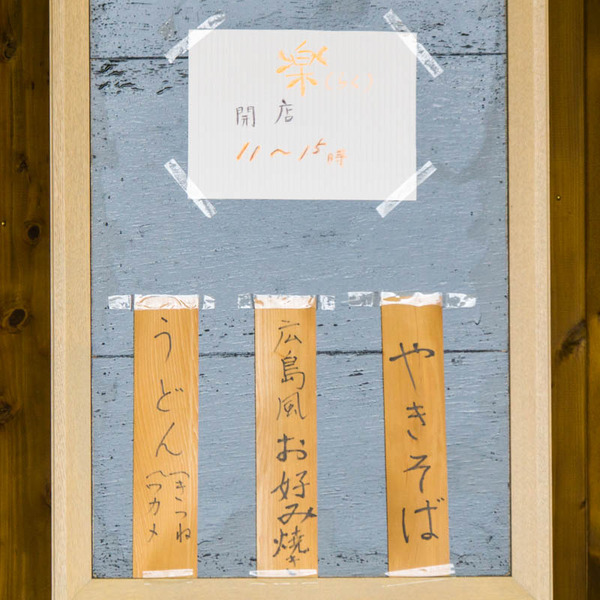 楽
開店
11～15時
やきそば
広島風お好み焼き
うどん
きつね
ワカメ